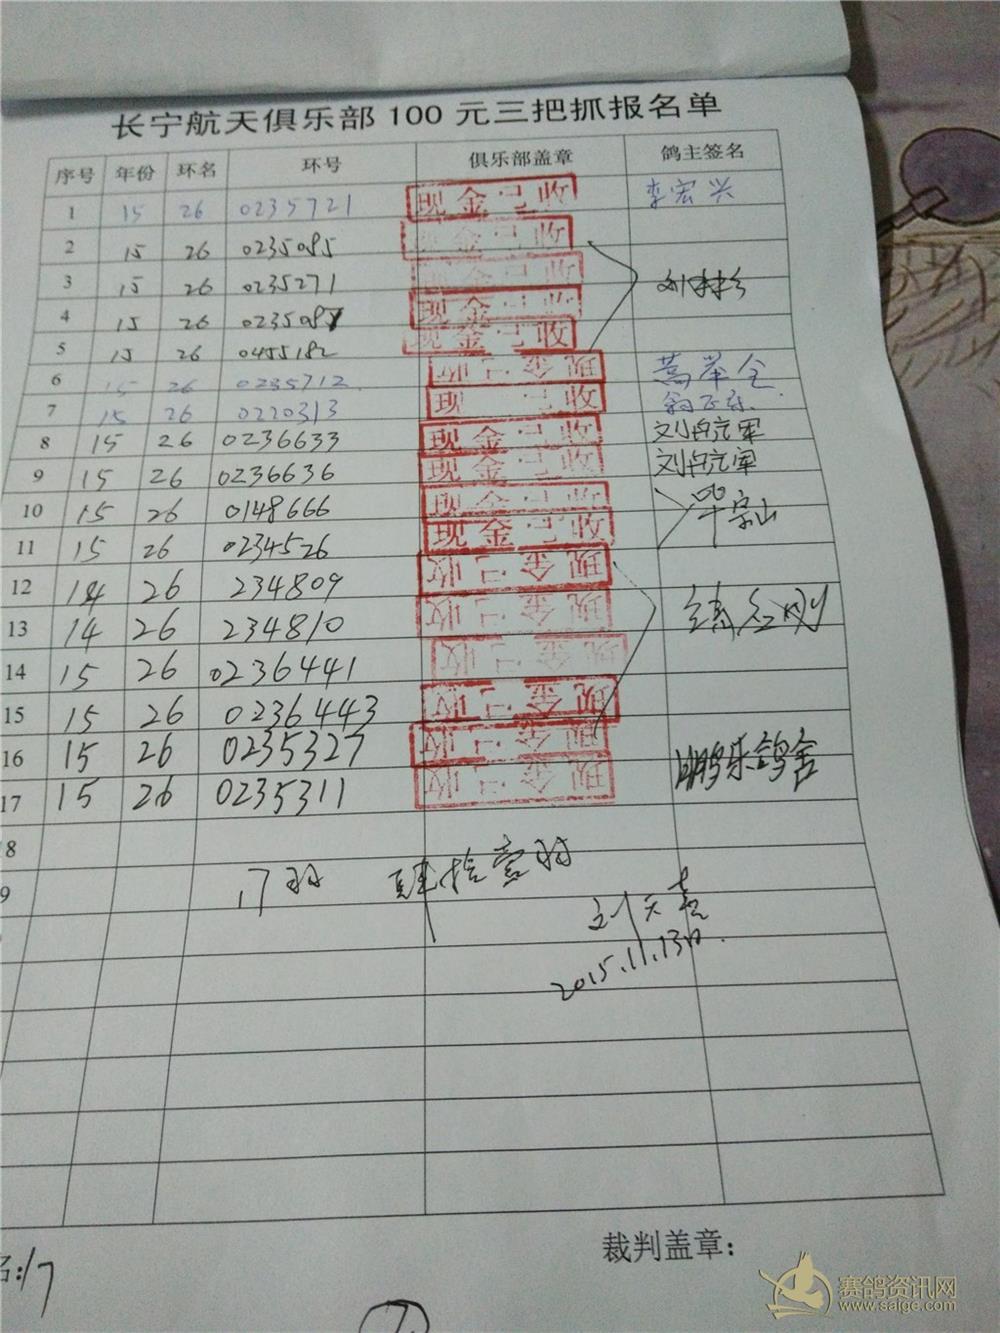 长宁航天俱乐部100元三把抓报名单
序号 年份 环名 环号 俱乐部盖章 鸽主签名
1 15 26 0235721 现金已收 李宏兴
2 15 26 0235085 现金已收
3 15 26 0235271 现金已收 刘林杉
4 15 26 0235087 现金已收
5 15 26 0455182 现金已收
6 15 26 0235712 现金已收
7 15 26 0220313 现 收
8 15 26 0236633 现金已收
9 15 26 0236636 现金已收
10 15 26 0148666 现金已收
11 15 26 0234526 现金已收
12 14 26 234809 现金已收
13 14 26 234810 现金已收
14 15 26 0236441 现金已收
15 15 26 0236443 现金已收
16 15 26 0235327 现金已收 鹏乐鸽舍
17 15 26 0235311 现金已收
18
9 17羽
刘天喜
2015.11.13日
名:17
裁判盖章:
赛鸽资讯网
www.saige.com